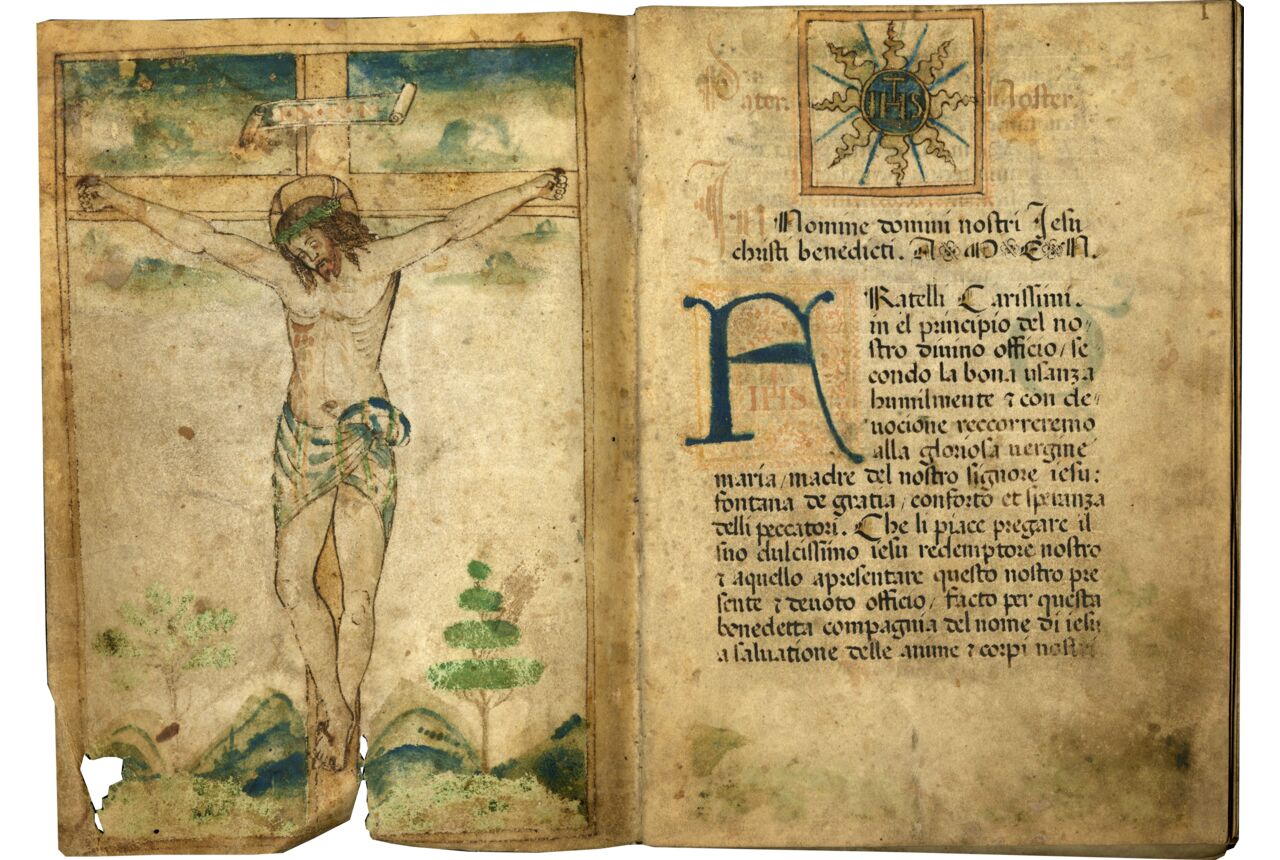 1
IHS
Nomine domini nostri Jesu
christi benedicti. A M E N.
FRatelli Carissimi.
in el principio del no⸗
stro diuino officio/ se
condo la bona usanza
humilmente ⁊ con de⸗
uocione reccorreremo
alla gloriosa uergine
maria/ madre del nostro signore iesu:
fontana de gratia/ conforto et speranza
delli peccatori. Che li piace pregare il
suo dulcissimo iesu redemptore nostro
⁊ aquello apresentare questo nostro pre
sente ⁊ deuoto officio/ facto per questa
benedetta compagnia del nome di iesu
a saluatione delle anime ⁊ corpi nostri